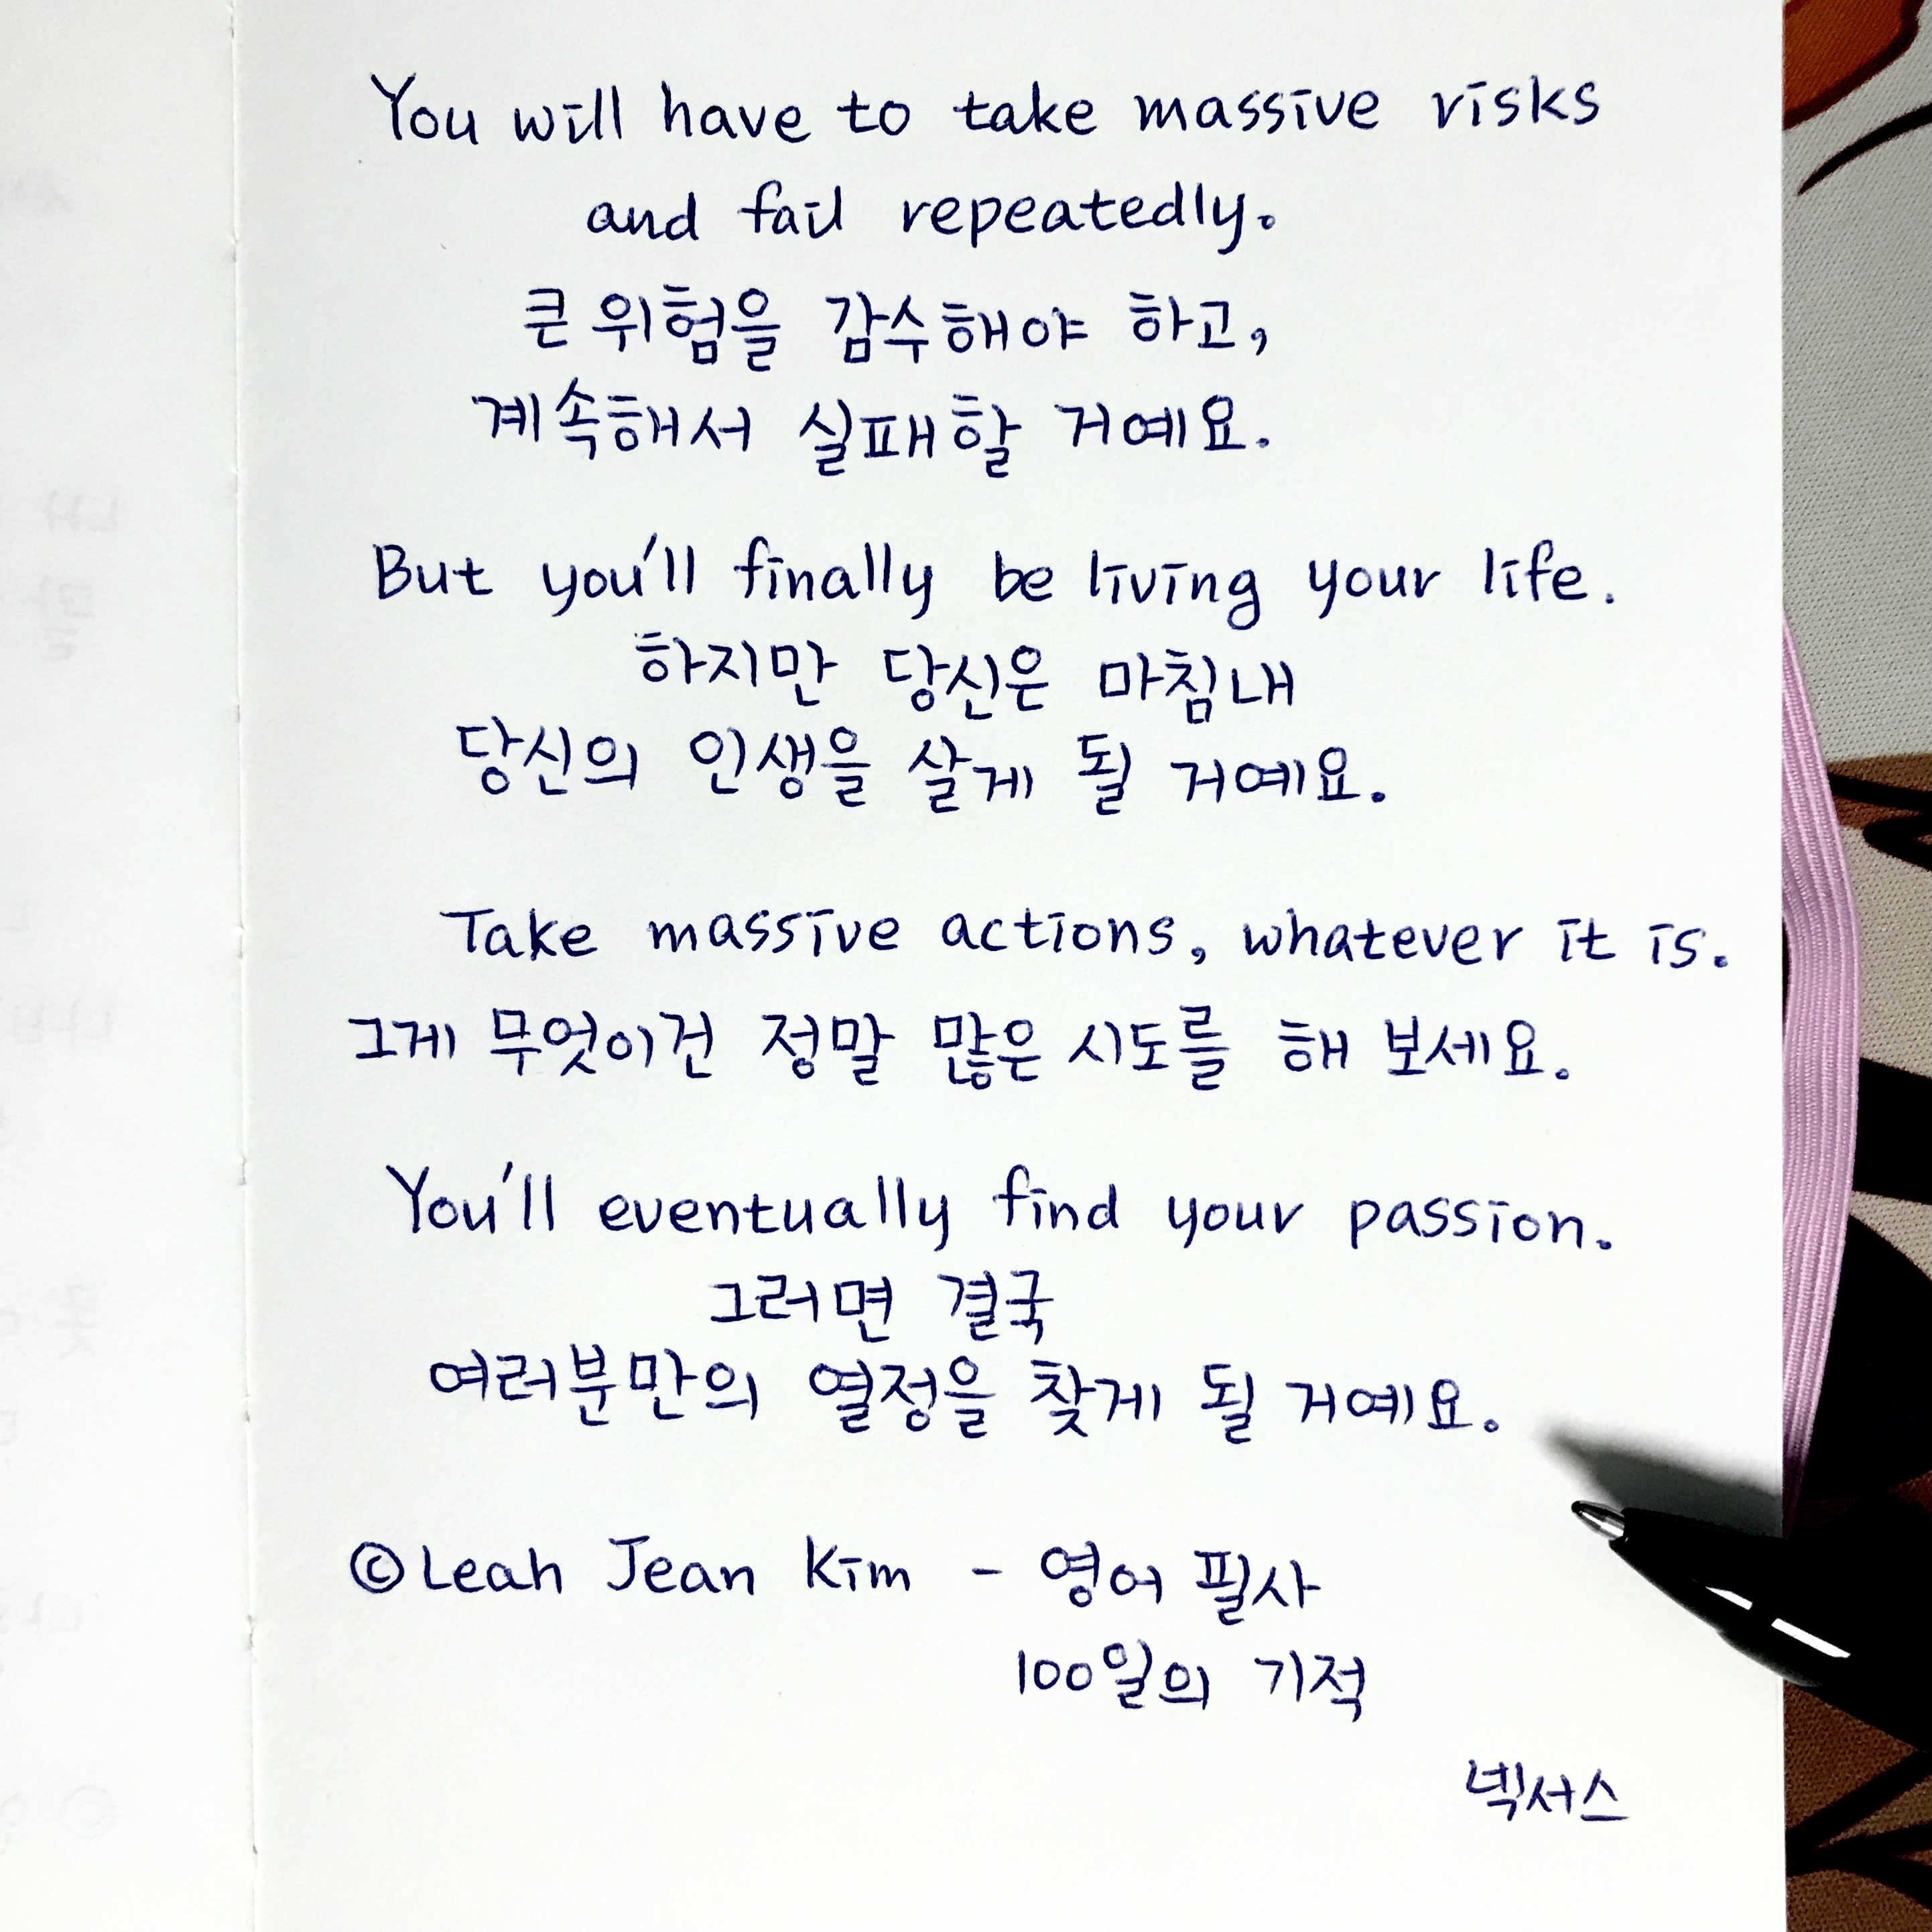 You will have to take massive risks
and fail repeatedly.
큰 위험을 감수해야 하고,
계속해서 실패할 거예요.
But you'll finally be living your life.
하지만 당신은 마침내
당신의 인생을 살게 될 거예요.
Take massive actions, whatever it is.
그게 무엇이건 정말 많은 시도를 해 보세요.
You'll eventually find your passion.
그러면 결국
여러분만의 열정을 찾게 될 거예요.
©Leah Jean Kim - 영어 필사
100일의 기적
넥서스